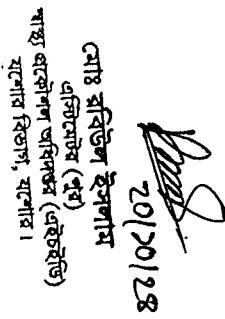 ২০/১০/২৪
মোঃ রবিউল ইসলাম
এস্টিমেটর (পুর)
স্বাস্থ্য প্রকৌশল অধিদপ্তর (এইচইডি)
যশোর বিভাগ, যশোর।